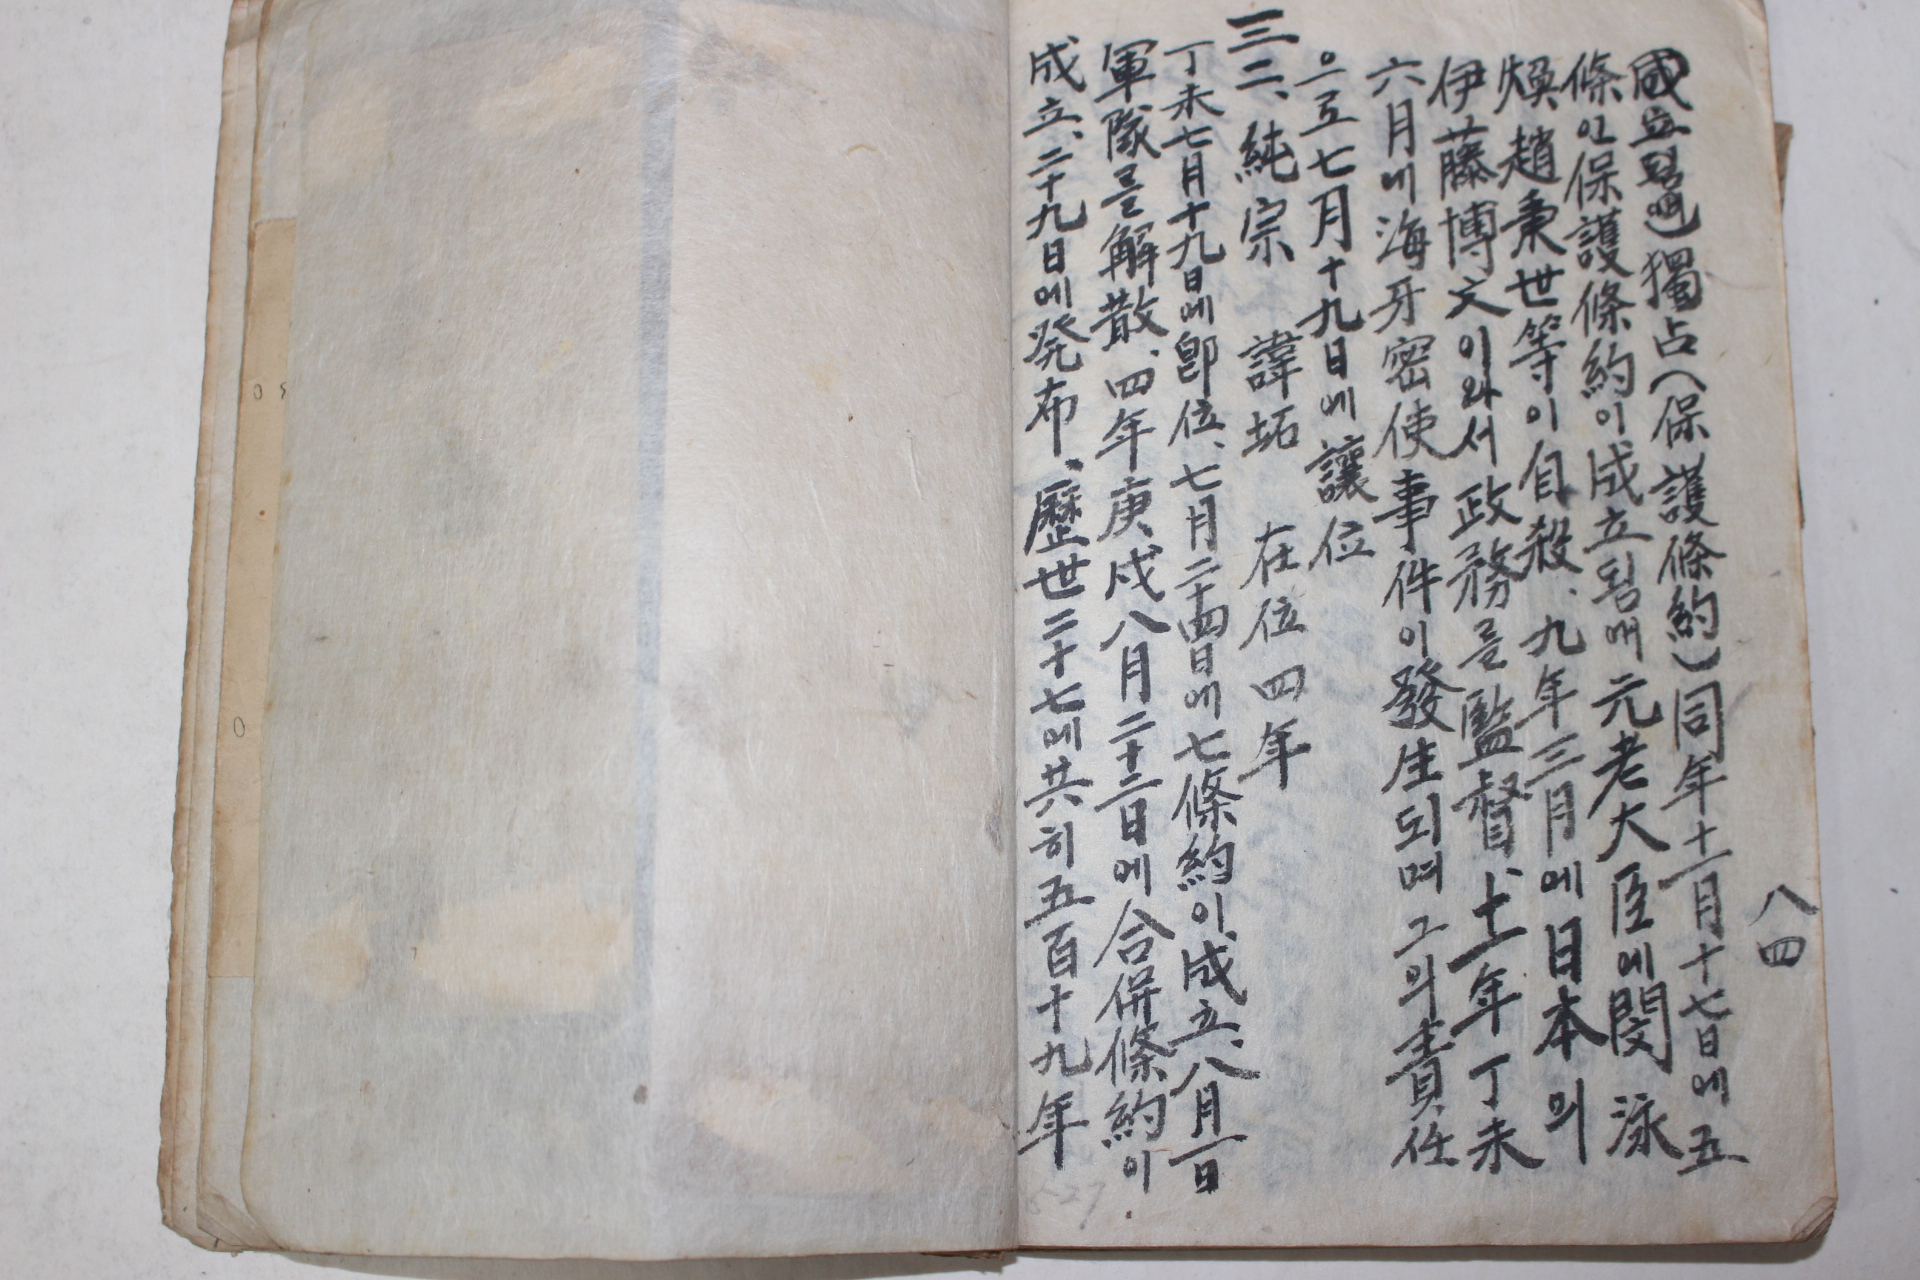 八四
成立됨에 獨占(保護條約) 同年十一月十七日에 五
條인 保護條約이 成立됨애 元老大臣에 閔泳
煥 趙秉世等이 自殺、九年三月에 日本의
伊藤博文이 와서 政務를 監督、十一年丁未
六月에 海牙密使事件이 發生되며 그의 責任
으로 七月十九日에 讓位
三二、純宗 諱坧 在位四年
丁未七月十九日에 卽位、七月二十四日에 七條約이 成立、八月一日
軍隊를 解散、四年庚戌八月二十二日에 合倂條約이
成立、二十九日에 発布、歷世二十七에 共히 五百十九年